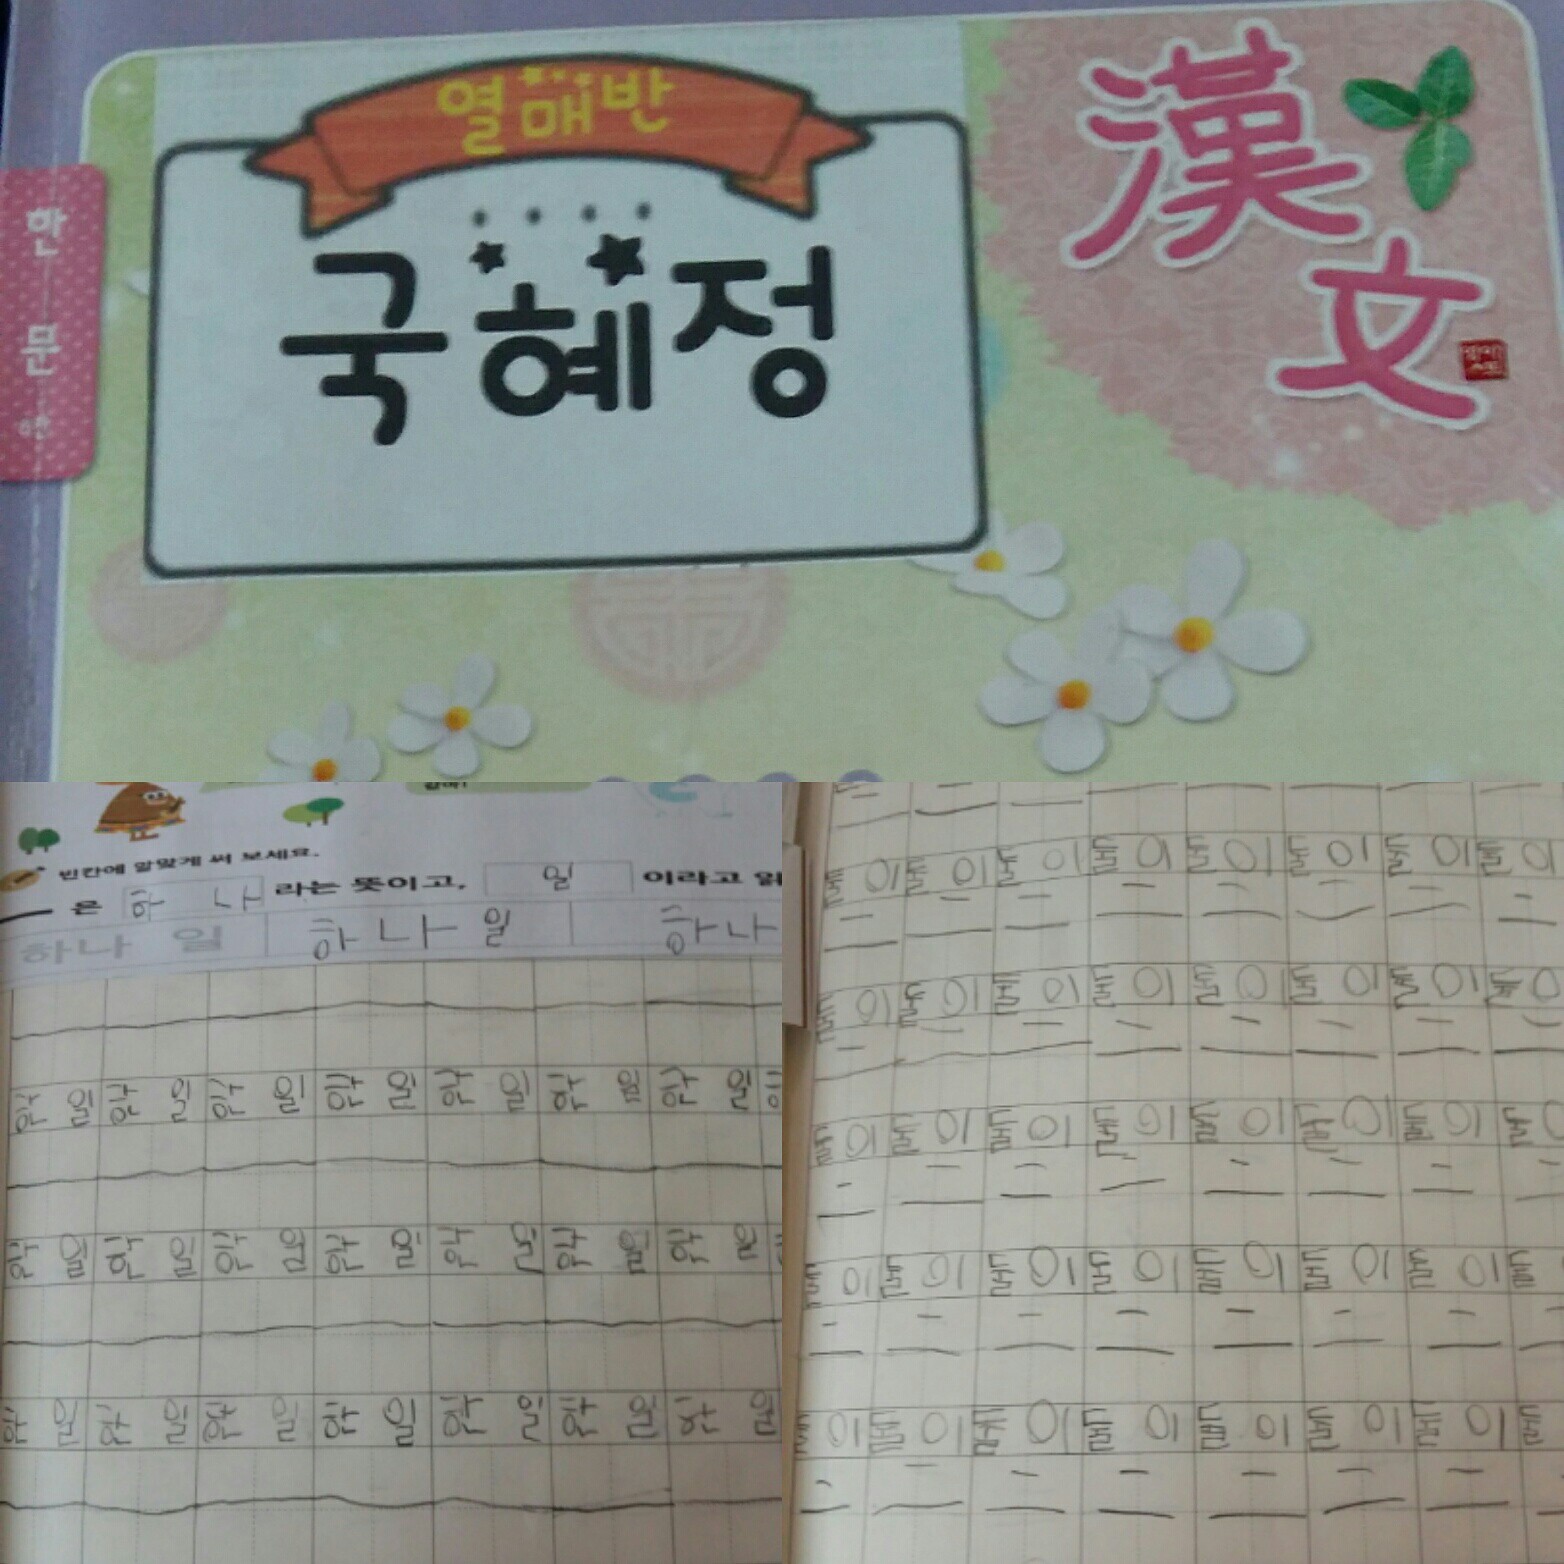 열매반
漢文
국혜정
한문
빈칸에 알맞게 써 보세요.
一 은 하나 라는 뜻이고, 일 이라고 읽
하나 일 하나 일 하나
한 일 한 일 한 일 한 일 한 일 한 일 한 일
한 일 한 일 한 일 한 일 한 일 한 일 한 일
한 일 한 일 한 일 한 일 한 일 한 일 한 일
둘 이 둘 이 둘 이 둘 이 둘 이 둘 이 둘 이 둘 이
二 二 二 二 二 二 二 二
둘 이 둘 이 둘 이 둘 이 둘 이 둘 이 둘 이 둘 이
二 二 二 二 二 二 二 二
둘 이 둘 이 둘 이 둘 이 둘 이 둘 이 둘 이 둘
二 二 二 二 二 二 二 二
둘 이 둘 이 둘 이 둘 이 둘 이 둘 이 둘 이 둘
二 二 二 二 二 二 二 二
둘 이 둘 이 둘 이 둘 이 둘 이 둘 이 둘 이 둘
二 二 二 二 二 二 二 二